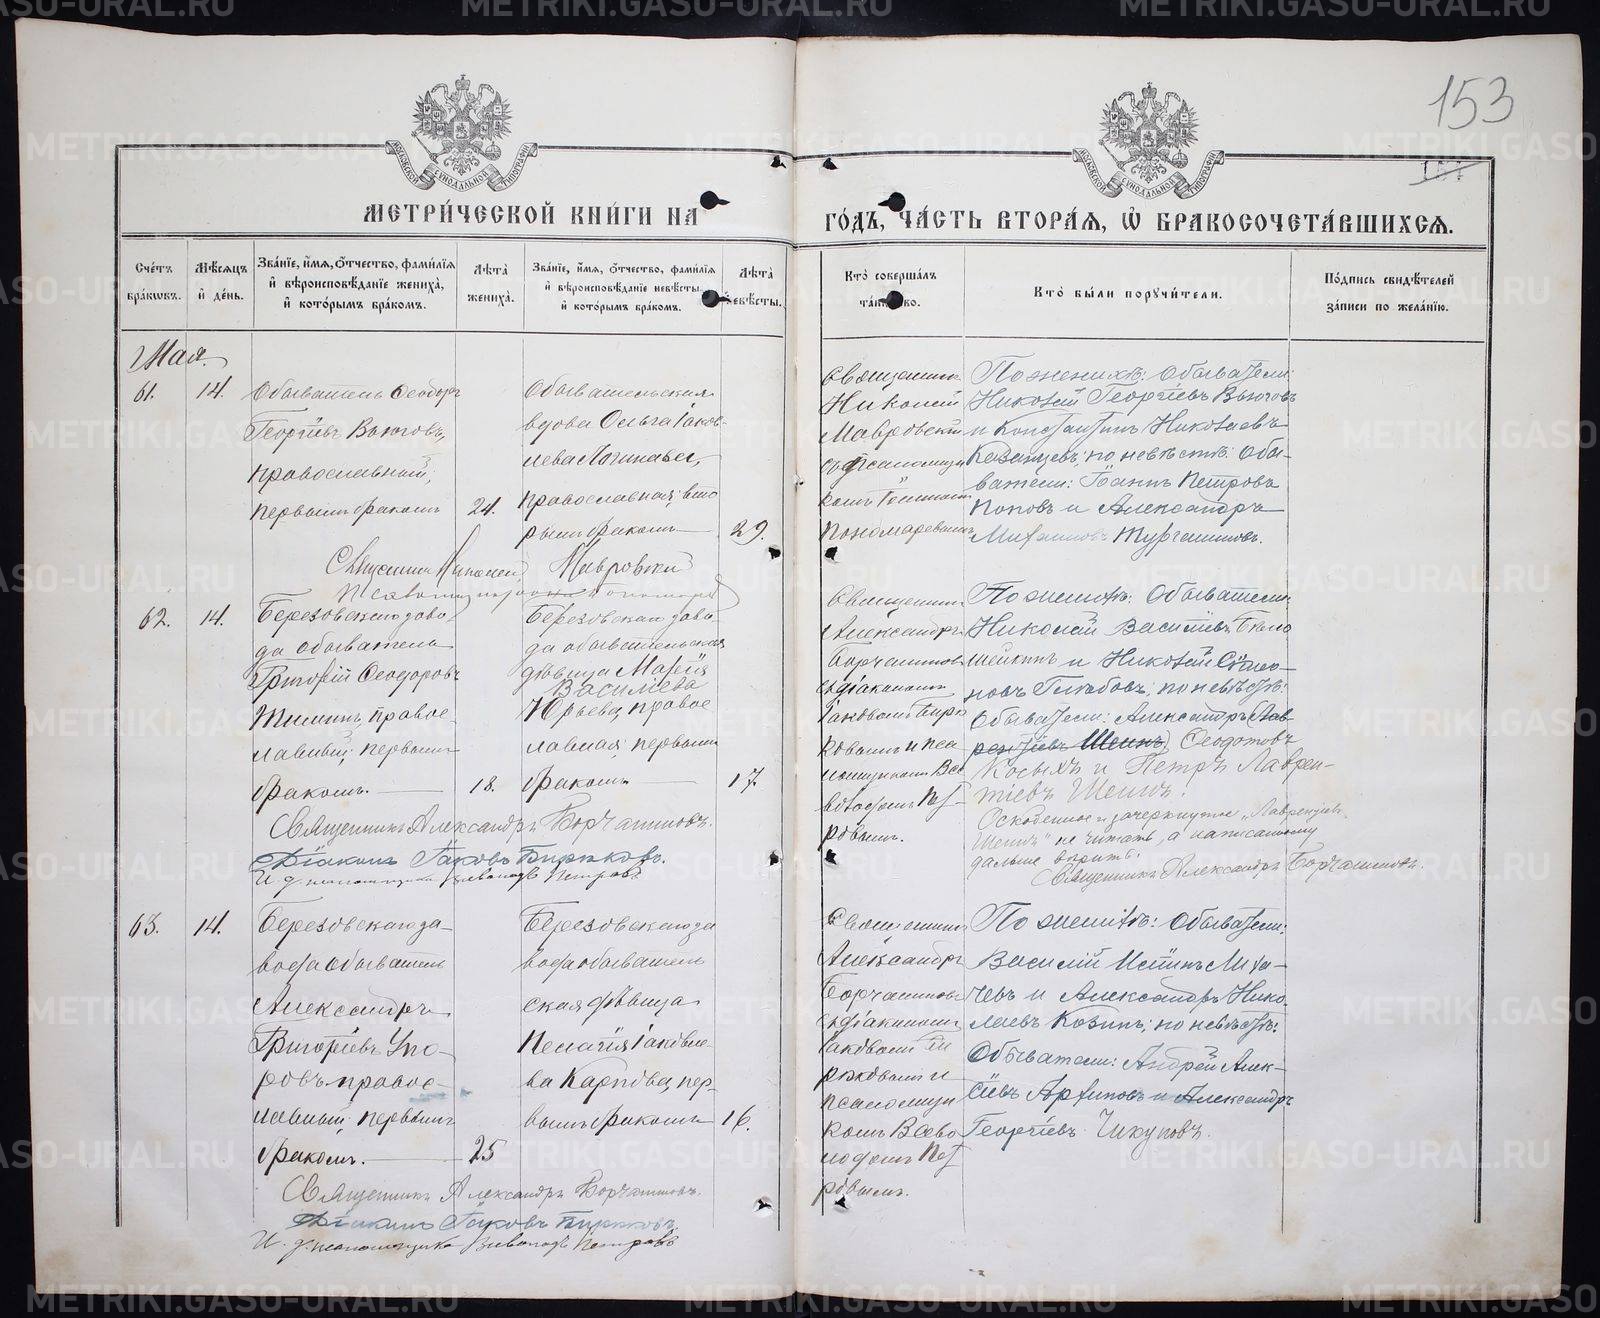 153
МЕТРИЧЕСКОЙ КНИГИ НА
ГОДЪ, ЧАСТЬ ВТОРАЯ, Ѡ БРАКОСОЧЕТАВШИХСЯ.
Счетъ браковъ.
Мѣсяцъ и день.
Званіе, имя, отчество, фамилія
и вѣроисповѣданіе жениха,
и которымъ бракомъ.
Лѣта
жениха.
Званіе, имя, отчество, фамилія
и вѣроисповѣданіе невѣсты,
и которымъ бракомъ.
Лѣта
невѣсты.
Кто совершалъ
таинство.
Кто были поручители.
Подпись свидѣтелей
записи по желанію.
Мая.
61.
14.
Обыватель Ѳеодоръ
Георгіевъ Вьюговъ,
православный,
первымъ бракомъ
24.
Обывательская
вдова Ольга Іаков-
лева
православная, вто
рымъ бракомъ
29.
Священникъ
Николай
Мавровскій
съ псаломщи
комъ
Пономаревымъ
По женихѣ: Обыватели:
Николай Георгіевъ Вьюговъ
и Константинъ Николаевъ
Казанцевъ; по невѣстѣ: Обы-
ватели: Іоаннъ Петровъ
Поповъ и Александръ
Михаиловъ
Священникъ Николай Мавровскій
62.
14.
Березовскаго заво
да обыватель
Григорій Ѳеодоровъ
православ
лавный, первымъ
бракомъ.
18.
Березовскаго заво
да обывательская
дѣвица Марія
Василіева
Юрьева, правос
лавная, первымъ
бракомъ
17.
Священникъ
Александръ
Борчаниновъ
съ діакономъ
Іаковомъ Бирю
ковымъ и пса
ломщикомъ Все
володомъ Пет
ровымъ.
По женихѣ: Обыватели:
Николай Василіевъ Бѣло
шейкинъ и Николай Симео-
новъ Глѣбовъ; по невѣстѣ:
Обыватели: Александръ Лав
рентіевъ Шеинъ Ѳеодотовъ
Косыхъ и Петръ Лаврен-
тіевъ Шеинъ.
Оскобленное и зачеркнутое „Лаврентіевъ
Шеинъ" не читать, а написанному
дальше вѣрить.
Священникъ Александръ Борчаниновъ.
Священникъ Александръ Борчаниновъ.
Діаконъ Іаковъ Бирюковъ.
И. д. псаломщика Всеволодъ Петровъ
63.
14.
Березовскаго за-
вода обыватель
Александръ
Григоріевъ Упо-
ровъ, правос-
лавный, первымъ
бракомъ.
25
Березовскаго за
вода обыватель
ская дѣвица
Пелагія Іаковле
ва Карпова, пер-
вымъ бракомъ
16.
Священникъ
Александръ
Борчаниновъ
съ діакономъ
Іаковомъ Би
рюковымъ и
псаломщи
комъ Всево
лодомъ Пет
ровымъ.
По женихѣ: Обыватели:
Василій
и Александръ Нико
лаевъ Козинъ; по невѣстѣ:
Обыватели: Андрей Алек-
сіевъ и Александръ
Георгіевъ Чикуновъ.
Священникъ Александръ Борчаниновъ.
Діаконъ Іаковъ Бирюковъ.
И. д. псаломщика Всеволодъ Петровъ
METRIKI.GASO-URAL.RU